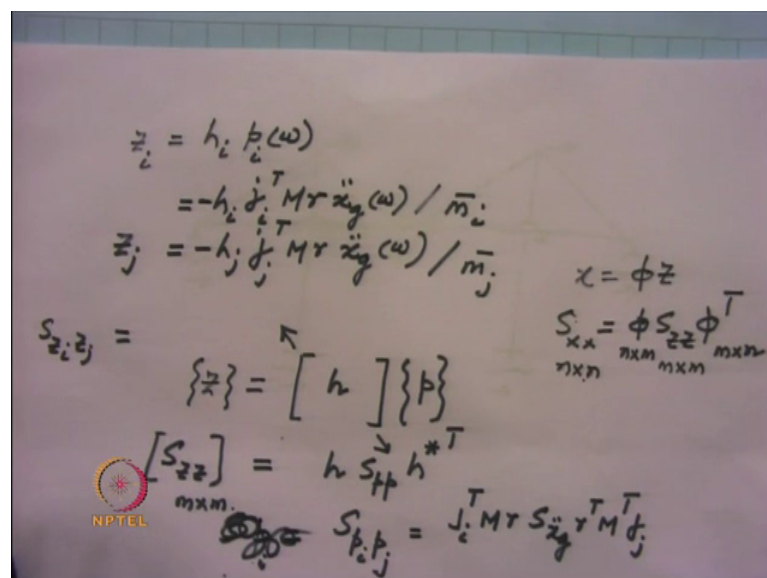 z_i = h_i p_i(ω)
= -h_i ϕ_i^T M r ẍ_g(ω) / m̄_i
z_j = -h_j ϕ_j^T M r ẍ_g(ω) / m̄_j
x = ϕ z
S_{z_i z_j} =
S_{xx} = ϕ S_{zz} ϕ^T
n×n n×m m×m m×n
{z} = [ h ] {p}
[S_{zz}] = h S_{pp} h^{*T}
m×m
NPTEL
S_{p_i p_j} = ϕ_i^T M r S_{ẍ_g} r^T M^T ϕ_j